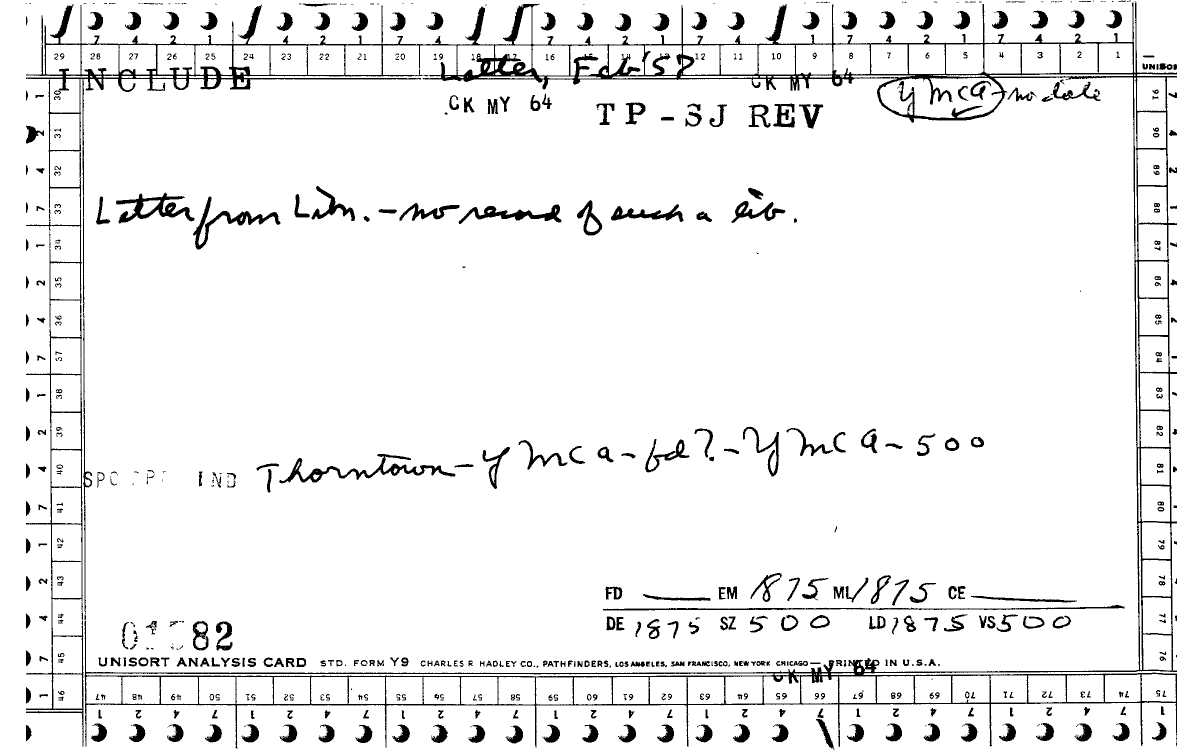 7 4 2 1 7 4 2 1 7 4 2 1 7 4 2 1 7 4 2 1 7 4 2 1 7 4 2 1
29 28 27 26 25 24 23 22 21 20 19 18 17 16 15 14 13 12 11 10 9 8 7 6 5 4 3 2 1
UNISOR
INCLUDE Letter, Feb '57 CK MY 64 YMCA - no date
CK MY 64 TP-SJ REV
Letter from Libn. - no record of such a lib.
IND Thorntown - YMCA - fd? - YMCA - 500
FD EM 1875 ML 1875 CE
DE 1875 SZ 500 LD 1875 VS 500
82
UNISORT ANALYSIS CARD STD. FORM Y9 CHARLES R HADLEY CO., PATHFINDERS, LOS ANGELES, SAN FRANCISCO, NEW YORK CHICAGO — PRINTED IN U.S.A.
CK MY 64
47 48 49 50 51 52 53 54 55 56 57 58 59 60 61 62 63 64 65 66 67 68 69 70 71 72 73 74 75
1 2 4 7 1 2 4 7 1 2 4 7 1 2 4 7 1 2 4 7 1 2 4 7 1 2 4 7 1